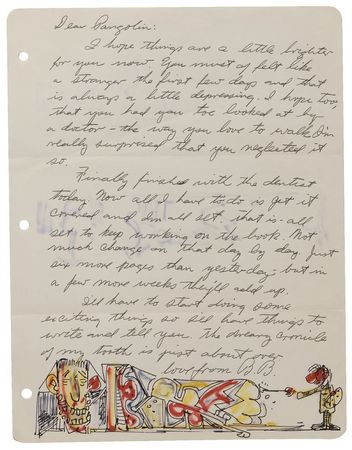 Dear Pangolin:
I hope things are a little brighter
for you now. You must of felt like
a stranger the first few days and that
is always a little depressing. I hope too
that you had you toe looked at by
a doctor - the way you love to walk I'm
really surprised that you neglected it
so.
Finally finished with the dentist
today. Now all I have to do is get it
covered and I'm all set, that is - all
set to keep working on the book. Not
much change on that day by day. Just
six more pages than yesterday - but in
a few more weeks they'll add up.
I'll have to start doing some
exciting things so I'll have things to
write and tell you. The dreary cronicle
of my tooth is just about over
love from B.B.